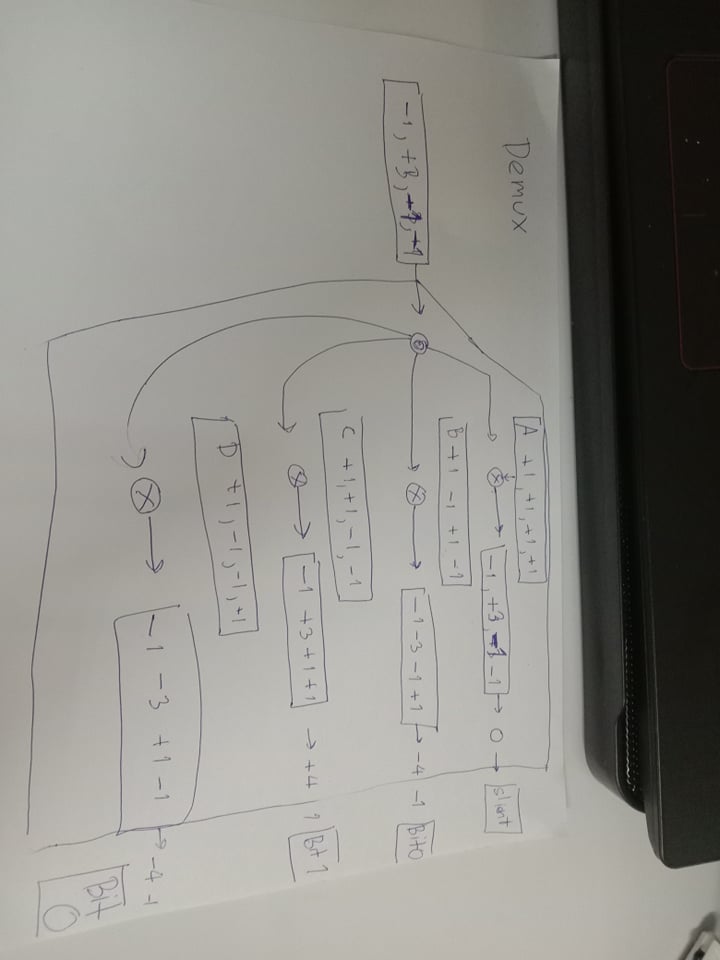 Demux
-1, +3, +1, +1
A +1, +1, +1, +1
-1, +3, -1 -1
0
slient
B +1 -1 +1 -1
-1 -3 -1 +1
-4 -1
Bit0
C +1, +1, -1, -1
-1 +3 +1 +1
+4 1
Bit 1
D +1, -1, -1, +1
-1 -3 +1 -1
-4 -1
Bit
0